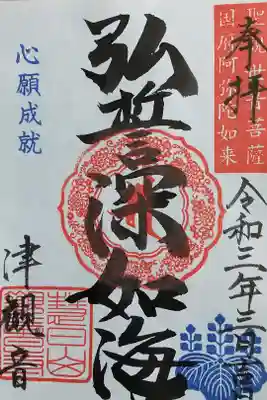 奉拝
聖観世音菩薩
国府阿弥陀如来
弘誓深如海
心願成就
令和三年三月吉日
津観音